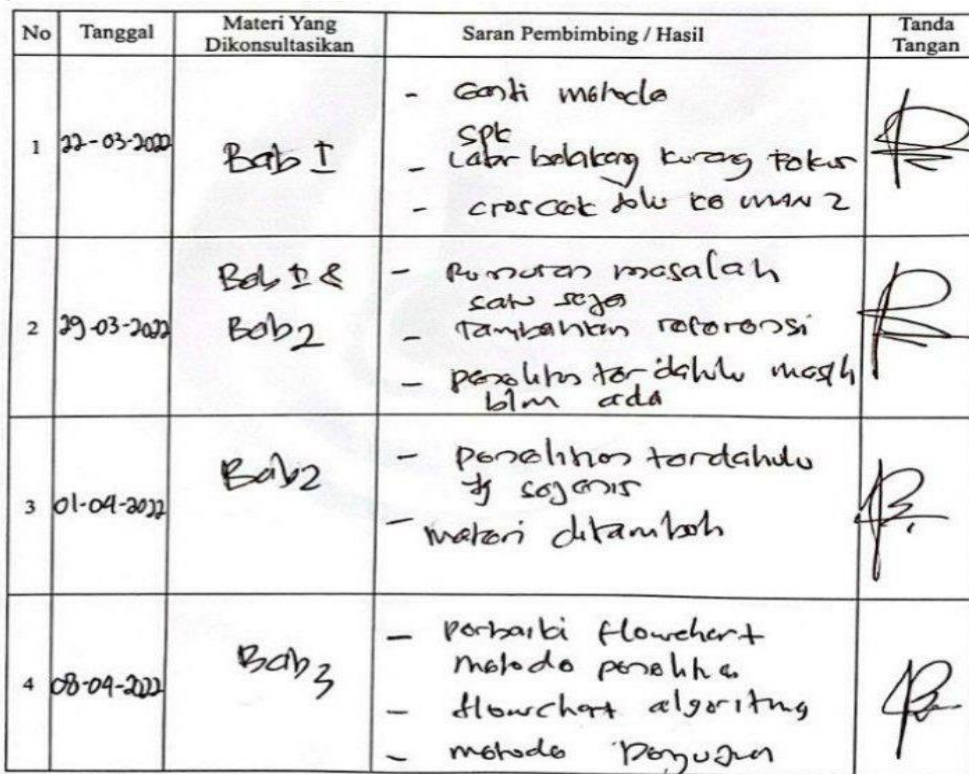 No Tanggal Materi Yang Dikonsultasikan Saran Pembimbing / Hasil Tanda Tangan
1 22-03-2022 Bab I
- Ganti metode
SPK
- Latar belakang kurang fokus
- croscek dulu ke MAN 2
2 29-03-2022 Bab I & Bab 2
- Rumusan masalah
satu saja
- Tambahkan referensi
- penelitian terdahulu masih
blm ada
3 01-04-2022 Bab 2
- Penelitian terdahulu
yg sejenis
- materi ditambah
4 08-04-2022 Bab 3
- Perbaiki flowchart
metode penelitian
- flowchart algoritma
- metode Pengujian